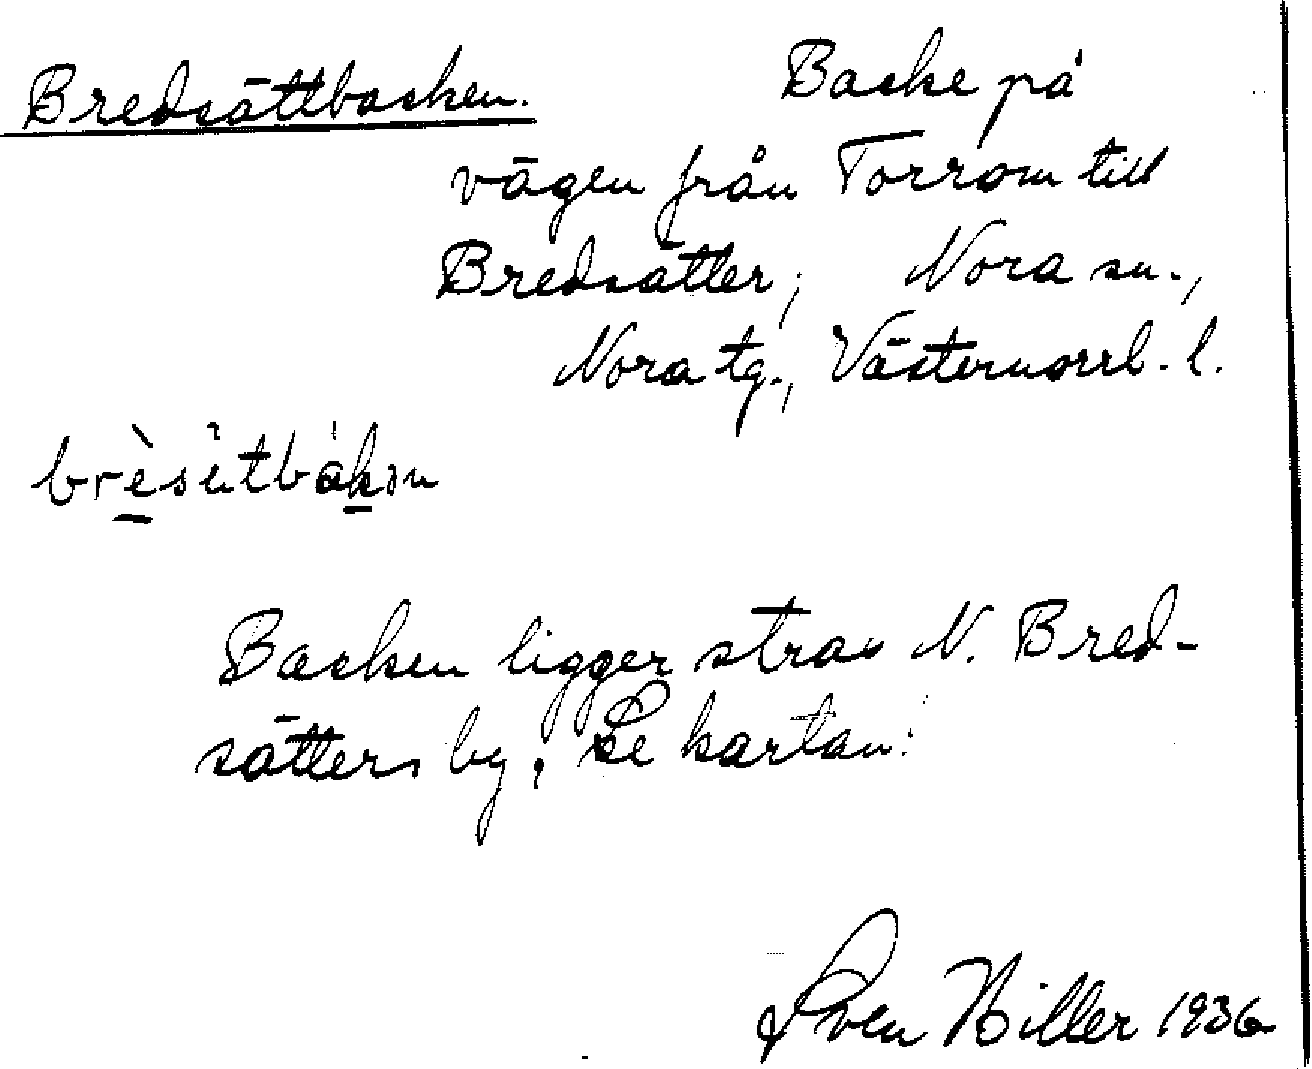 Bredsättbacken. Backe på
vägen från Torrom till
Bredsätter, Nora sn.,
Nora tg., Västernorrl. l.
Backen ligger strax N. Bred-
sätters by. Se kartan!
Sven Hiller 1936